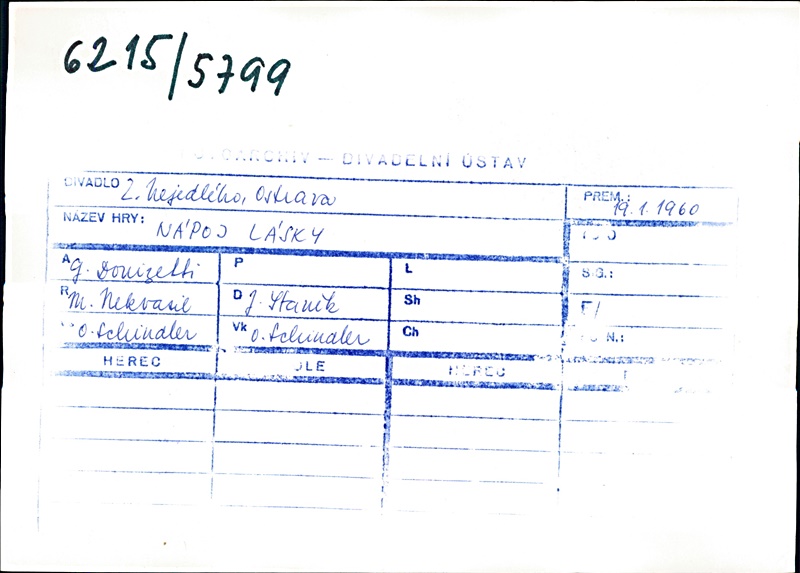 6215/5799
FOTOARCHIV – DIVADELNÍ ÚSTAV
DIVADLO Z. Nejedlého, Ostrava
PREM.: 19.1.1960
NÁZEV HRY: NÁPOJ LÁSKY
A G. Donizetti P L SG.:
R M. Nekvasil D J. Staněk Sh F/
O. Schindler Vk O. Schindler Ch N.:
HEREC OLE HEREC